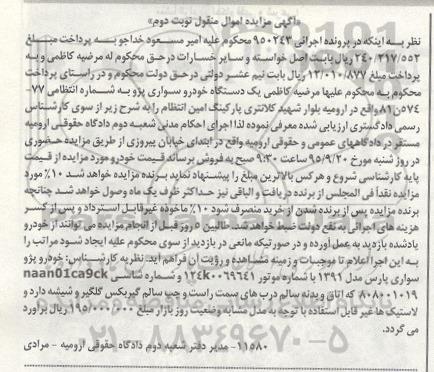 «آگهی مزایده اموال منقول نوبت دوم»
نظر به اینکه در پرونده اجرائی ۹۵۰۲۴۳ محکوم علیه امیر مسعود خداجو به پرداخت مبلغ
۲۴۰/۲۱۷/۵۵۲ ریال بابت اصل خواسته و سایر خسارات در حق محکوم له مرضیه کاظمی و به
پرداخت مبلغ ۱۲/۰۱۰/۸۷۷ ریال بابت نیم عشر دولتی در حق دولت محکوم و در راستای پرداخت
محکوم به محکوم علیها مرضیه کاظمی یک دستگاه خودرو سواری پژو به شماره انتظامی ۷۷-
۵۷۴ن۸۱ واقع در ارومیه بلوار شهید کلانتری پارکینگ امین النظام را به شرح زیر از سوی کارشناس
رسمی دادگستری ارزیابی شده معرفی نموده لذا اجرای احکام مدنی شعبه دوم دادگاه حقوقی ارومیه
مستقر در دادگاههای عمومی و حقوقی ارومیه واقع در ابتدای خیابان پیروزی از طریق مزایده حضوری
در روز شنبه مورخ ۹۵/۹/۲۰ ساعت ۹:۳۰ صبح به فروش برساند قیمت خودرو مورد مزایده از قیمت
پایه کارشناسی شروع و هرکس بالاترین مبلغ را پیشنهاد نماید برنده مزایده خواهد شد ۱۰٪ مورد
مزایده نقداً فی المجلس از برنده دریافت و الباقی نیز حداکثر ظرف یک ماه وصول خواهد شد چنانچه
برنده مزایده پس از برنده شدن از خرید منصرف شود ۱۰٪ ماخوذه غیرقابل استرداد و پس از کسر
هزینه های اجرائی به نفع دولت ضبط خواهد شد. طالبین ۵ روز قبل از انجام مزایده می توانند از خودرو
یادشده بازدید به عمل آورده و در صورتیکه مانعی در بازدید از سوی محکوم علیه ایجاد شود مراتب را
به این اجرا اعلام تا موجبات و زمینه مشاهده و رؤیت آن فراهم آید. نظریه کارشناس: خودرو پژو
سواری پارس مدل ۱۳۹۱ با شماره موتور ۱۲۴k۰۰۶۹۶۴۱ و شماره شاسی naan01ca9ck
۸۰۸۰۰۱۰۱۹ که اتاق و بدنه سالم درب های سمت راست و چپ سالم گیربکس گلگیر و شیشه دارد و
لاستیک ها غیر قابل استفاده با توجه به مدل مشابه وضعیت روز بازار مبلغ ۱۹۵/۰۰۰/۰۰۰ ریال برآورد
می گردد.
۱۱۵۸۰- مدیر دفتر شعبه دوم دادگاه حقوقی ارومیه - مرادی
۰۲۱-۸۸۳۴۹۶۷۰-۵